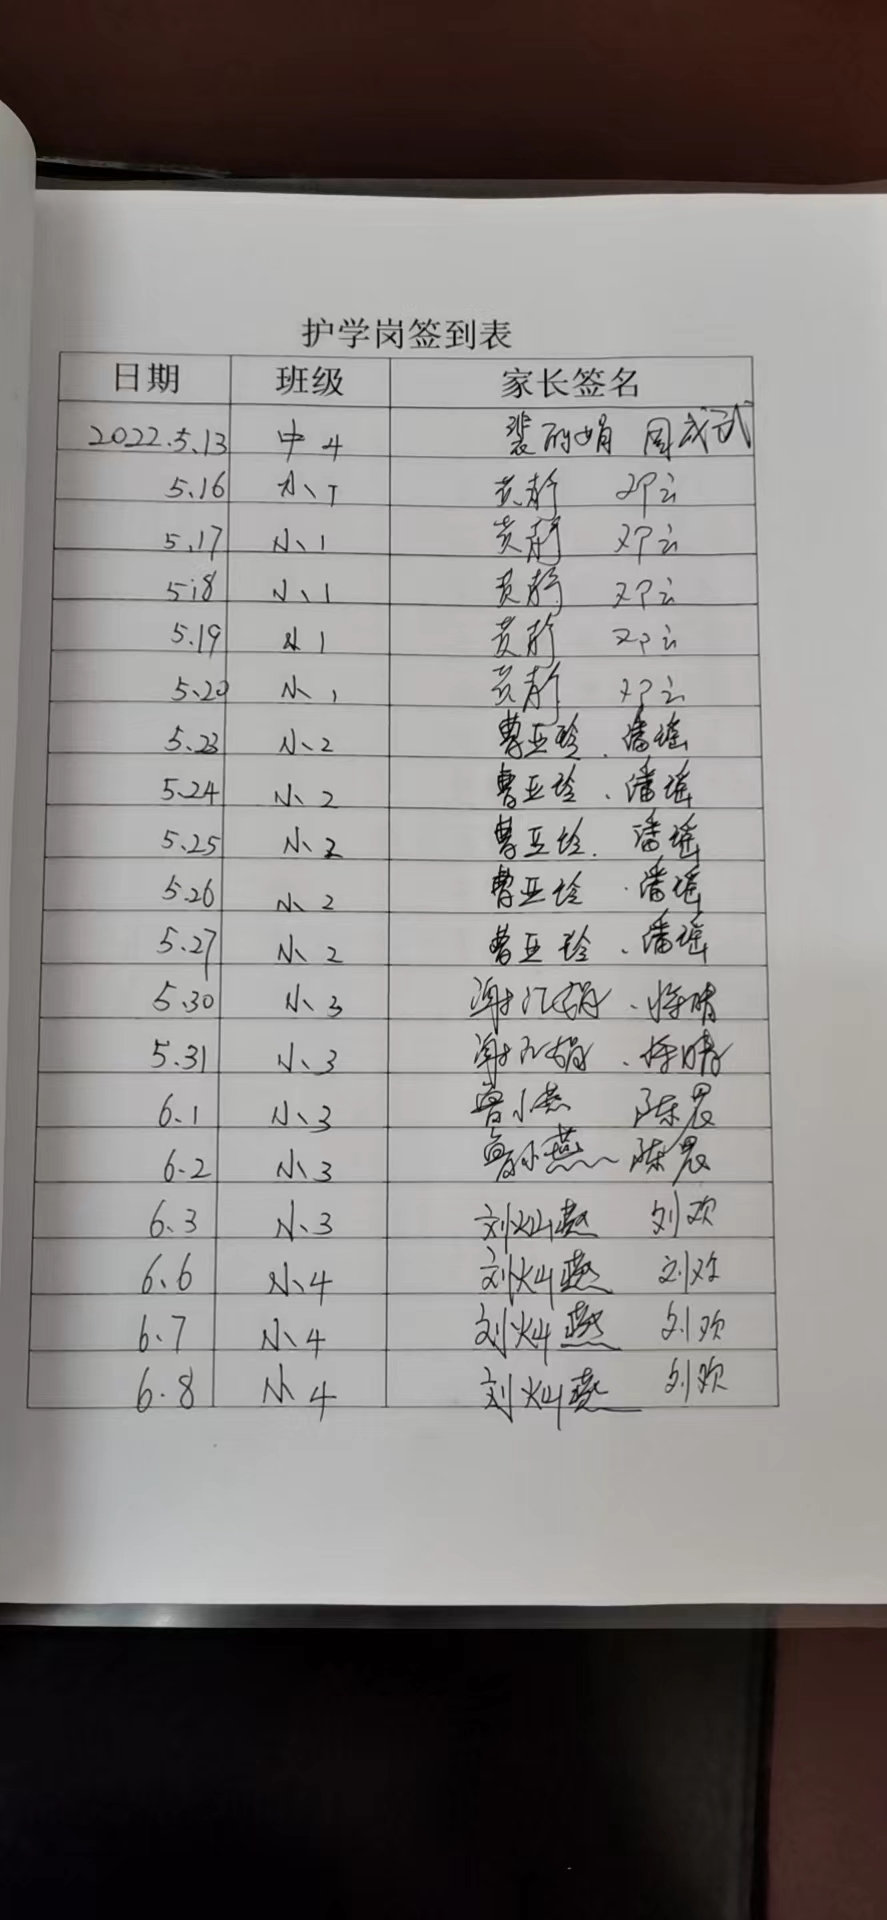 护学岗签到表
日期 班级 家长签名
2022.5.13 中4
5.16 小1 黄静 邓云
5.17 小1 黄静 邓云
5.18 小1 黄静 邓云
5.19 小1 黄静 邓云
5.20 小1 黄静 邓云
5.23 小2 曹亚玲 潘瑶
5.24 小2 曹亚玲 潘瑶
5.25 小2 曹亚玲 潘瑶
5.26 小2 曹亚玲 潘瑶
5.27 小2 曹亚玲 潘瑶
5.30 小3
5.31 小3
6.1 小3 曾小燕 陈晨
6.2 小3 曾小燕 陈晨
6.3 小3 刘灿燕 刘欢
6.6 小4 刘灿燕 刘欢
6.7 小4 刘灿燕 刘欢
6.8 小4 刘灿燕 刘欢